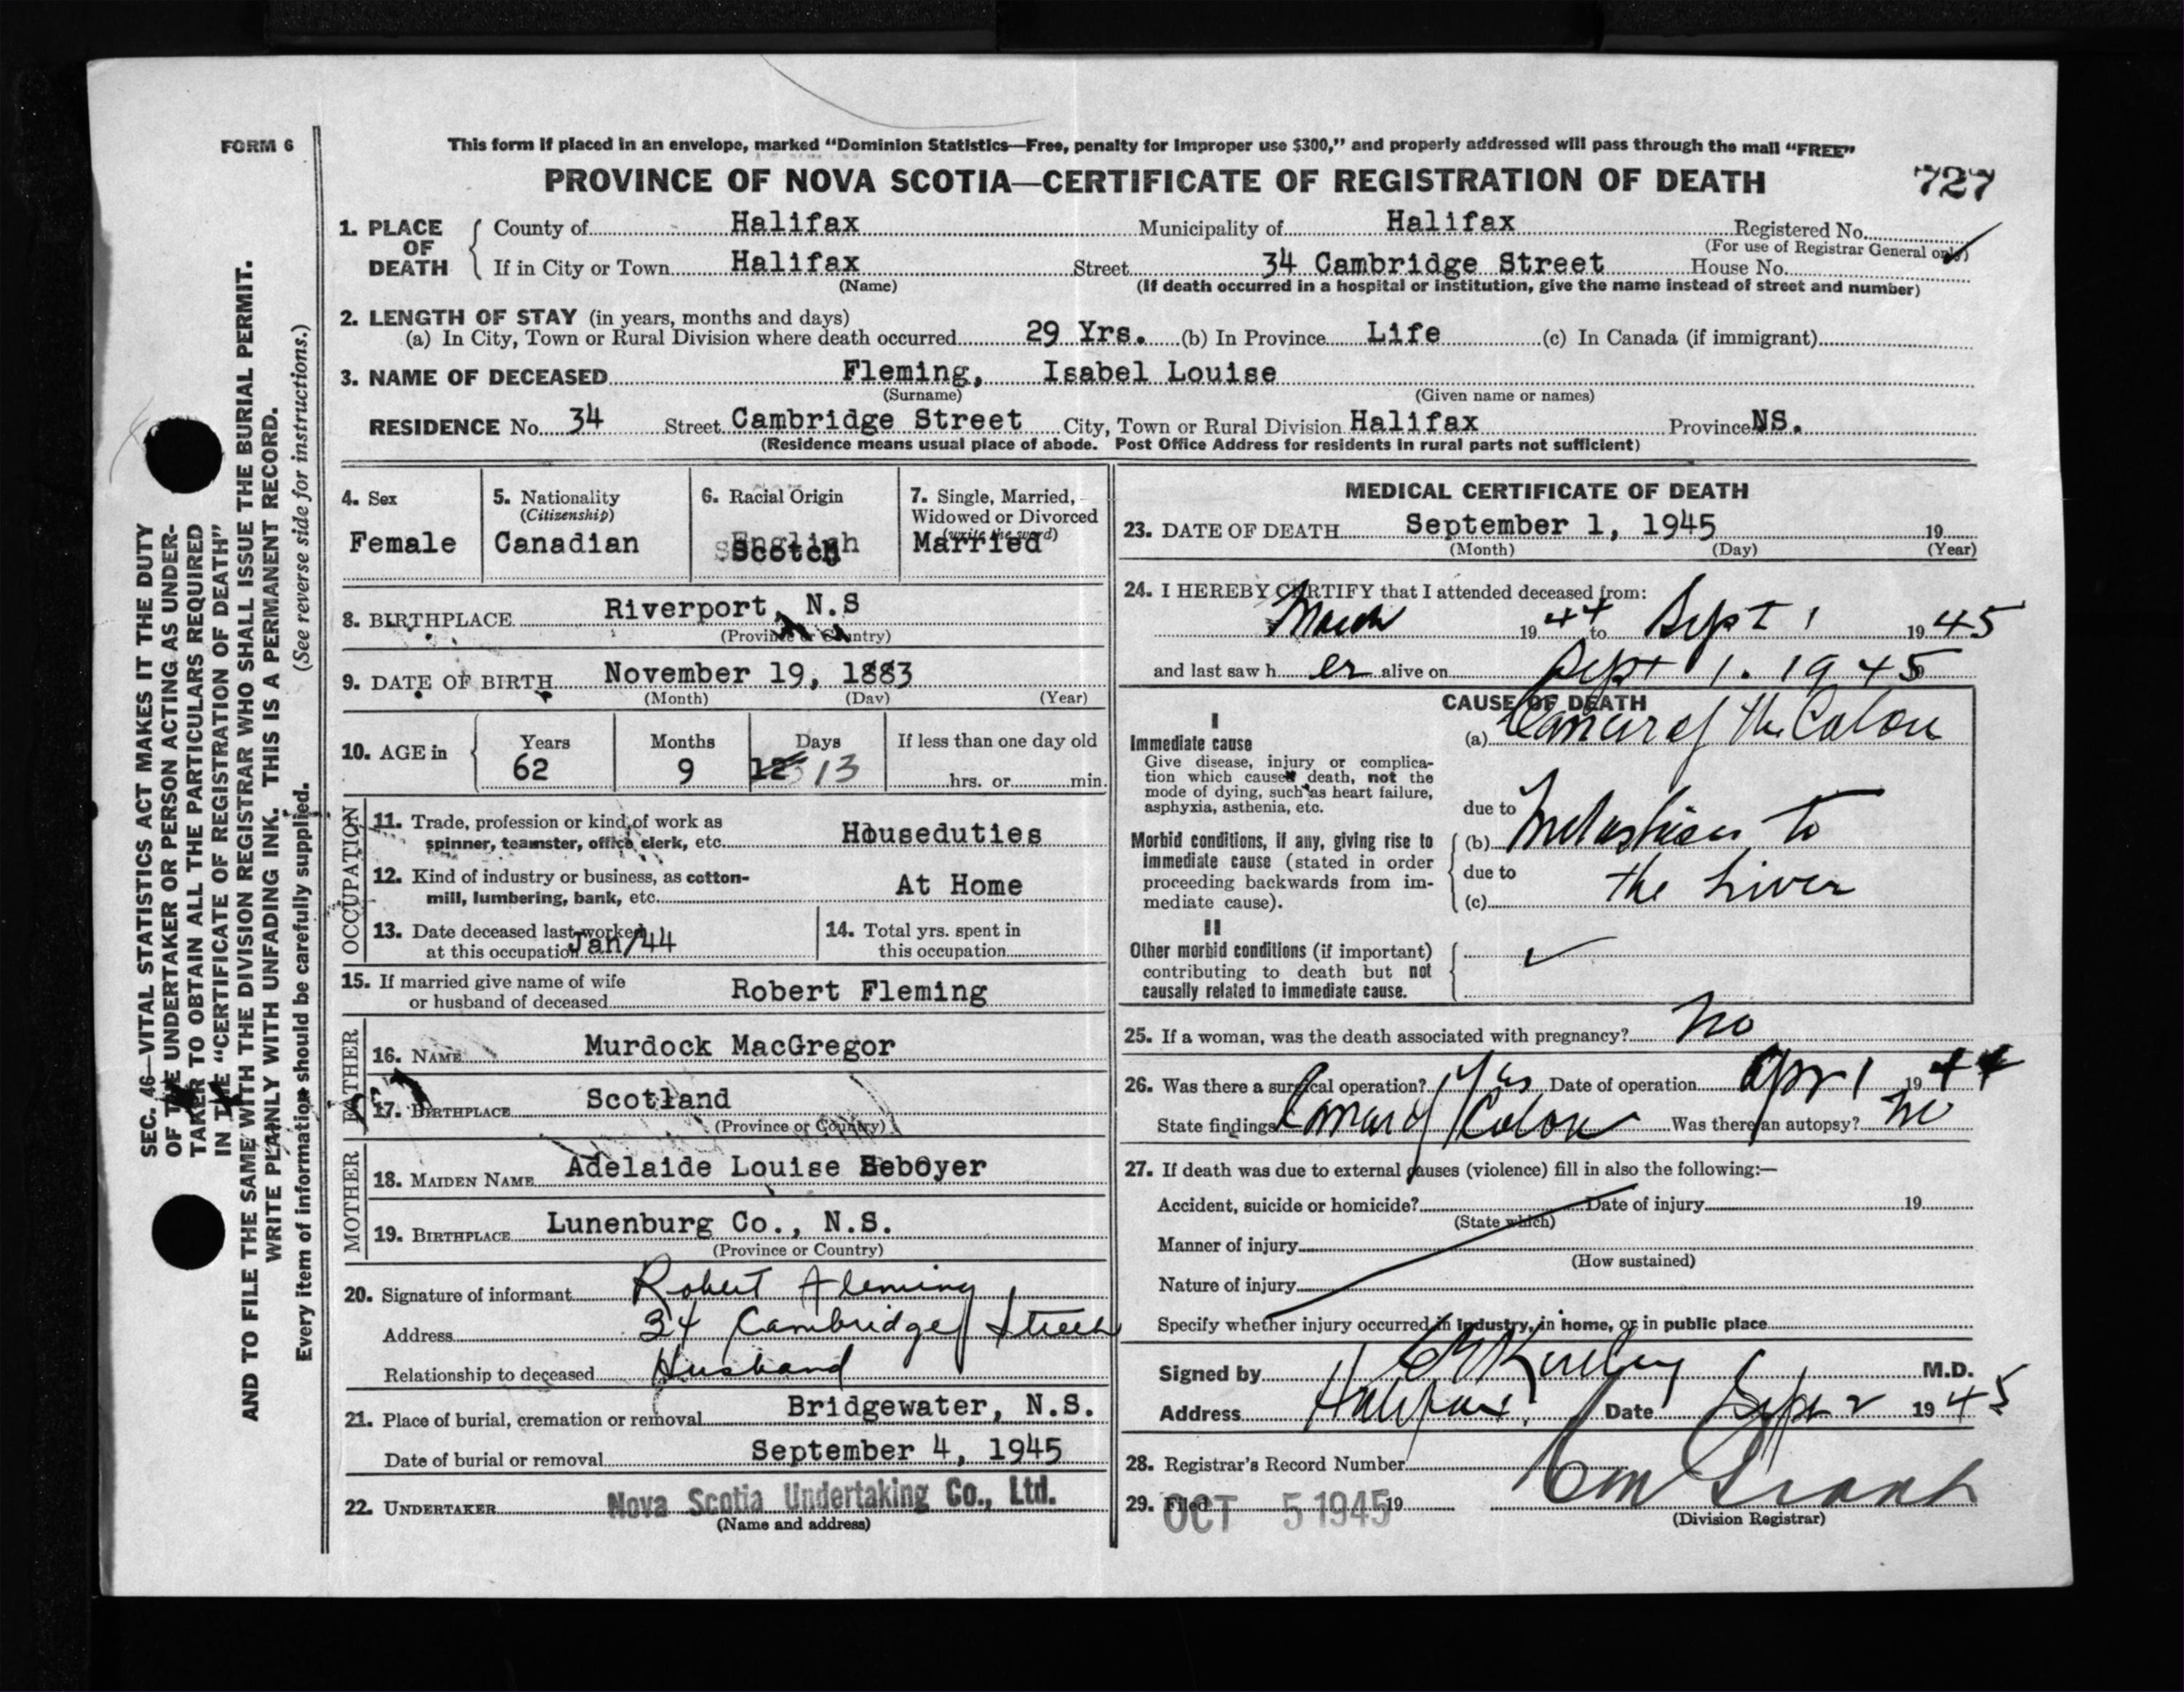 FORM 6
This form if placed in an envelope, marked “Dominion Statistics—Free, penalty for improper use $300,” and properly addressed will pass through the mail “FREE”
PROVINCE OF NOVA SCOTIA—CERTIFICATE OF REGISTRATION OF DEATH
727
1. PLACE OF DEATH
County of Halifax Municipality of Halifax Registered No.
(For use of Registrar General only)
If in City or Town Halifax Street 34 Cambridge Street House No.
(Name) (If death occurred in a hospital or institution, give the name instead of street and number)
2. LENGTH OF STAY (in years, months and days)
(a) In City, Town or Rural Division where death occurred 29 Yrs. (b) In Province Life (c) In Canada (if immigrant)
3. NAME OF DECEASED Fleming, Isabel Louise
(Surname) (Given name or names)
RESIDENCE No. 34 Street Cambridge Street City, Town or Rural Division Halifax Province NS.
(Residence means usual place of abode. Post Office Address for residents in rural parts not sufficient)
4. Sex
Female
5. Nationality
(Citizenship)
Canadian
6. Racial Origin
English
Scotch
7. Single, Married,
Widowed or Divorced
(write the word)
Married
8. BIRTHPLACE Riverport, N.S
(Province or Country)
9. DATE OF BIRTH November 19, 1883
(Month) (Day) (Year)
10. AGE in
Years Months Days If less than one day old
62 9 12 13 hrs. or min.
OCCUPATION
11. Trade, profession or kind of work as
spinner, teamster, office clerk, etc. Houseduties
12. Kind of industry or business, as cotton-
mill, lumbering, bank, etc. At Home
13. Date deceased last worked
at this occupation Jan/44
14. Total yrs. spent in
this occupation
15. If married give name of wife
or husband of deceased Robert Fleming
FATHER
16. NAME Murdock MacGregor
17. BIRTHPLACE Scotland
(Province or Country)
MOTHER
18. MAIDEN NAME Adelaide Louise
19. BIRTHPLACE Lunenburg Co., N.S.
(Province or Country)
20. Signature of informant Robert Fleming
Address 34 Cambridge Street
Relationship to deceased Husband
21. Place of burial, cremation or removal Bridgewater, N.S.
Date of burial or removal September 4, 1945
22. UNDERTAKER Nova Scotia Undertaking Co., Ltd.
(Name and address)
MEDICAL CERTIFICATE OF DEATH
23. DATE OF DEATH September 1, 1945 19
(Month) (Day) (Year)
24. I HEREBY CERTIFY that I attended deceased from:
March 19 44 to Sept 1 19 45
and last saw h er alive on Sept 1. 1945
CAUSE OF DEATH
I
Immediate cause
Give disease, injury or complica-
tion which caused death, not the
mode of dying, such as heart failure,
asphyxia, asthenia, etc.
(a) Cancer of the Colon
due to
Morbid conditions, if any, giving rise to
immediate cause (stated in order
proceeding backwards from im-
mediate cause).
(b) Metastises to
due to
(c) the Liver
II
Other morbid conditions (if important)
contributing to death but not
causally related to immediate cause.
25. If a woman, was the death associated with pregnancy? No
26. Was there a surgical operation? Yes Date of operation Apr 1 19 44
State findings Cancer of Colon Was there an autopsy? No
27. If death was due to external causes (violence) fill in also the following:—
Accident, suicide or homicide? Date of injury 19
(State which)
Manner of injury
(How sustained)
Nature of injury
Specify whether injury occurred in industry, in home, or in public place
Signed by M.D.
Address Halifax, Date Sept 2 19 45
28. Registrar's Record Number
29. Filed OCT 5 1945 19 Grant
(Division Registrar)
SEC. 46—VITAL STATISTICS ACT MAKES IT THE DUTY
OF THE UNDERTAKER OR PERSON ACTING AS UNDER-
TAKER TO OBTAIN ALL THE PARTICULARS REQUIRED
IN THE “CERTIFICATE OF REGISTRATION OF DEATH”
AND TO FILE THE SAME WITH THE DIVISION REGISTRAR WHO SHALL ISSUE THE BURIAL PERMIT.
WRITE PLAINLY WITH UNFADING INK. THIS IS A PERMANENT RECORD.
Every item of information should be carefully supplied. (See reverse side for instructions.)